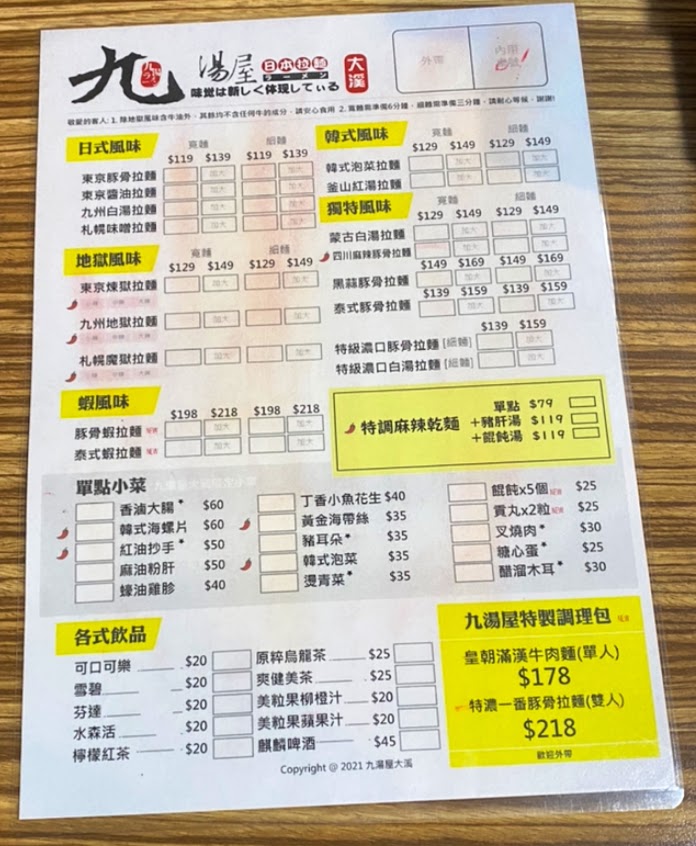 九
九湯
湯屋 日本拉麵 大溪
ラーメン
味覚は新しく体現している
外帶
內用
敬愛的客人: 1. 除地獄風味含牛油外,其餘均不含任何牛的成分,請安心食用 2. 寬麵需準備6分鐘,細麵需準備三分鐘,請耐心等候,謝謝!
日式風味
寬麵 細麵
$119 $139 $119 $139
東京豚骨拉麵 加大 加大
東京醬油拉麵 加大 加大
九州白湯拉麵 加大 加大
札幌味噌拉麵 加大 加大
地獄風味
寬麵 細麵
$129 $149 $129 $149
東京煉獄拉麵 加大 加大
小辣 中辣 大辣
九州地獄拉麵 加大 加大
小辣 中辣 大辣
札幌魔獄拉麵 加大 加大
小辣 中辣 大辣
蝦風味
$198 $218 $198 $218
豚骨蝦拉麵 加大 加大
泰式蝦拉麵 加大 加大
韓式風味
寬麵 細麵
$129 $149 $129 $149
韓式泡菜拉麵 加大 加大
釜山紅湯拉麵 加大 加大
獨特風味
寬麵 細麵
$129 $149 $129 $149
蒙古白湯拉麵 加大 加大
四川麻辣豚骨拉麵 加大 加大
$149 $169 $149 $169
黑蒜豚骨拉麵 加大 加大
$139 $159 $139 $159
泰式豚骨拉麵 加大 加大
$139 $159
特級濃口豚骨拉麵 [細麵] 加大
特級濃口白湯拉麵 [細麵] 加大
特調麻辣乾麵
單點 $79
+豬肝湯 $119
+餛飩湯 $119
單點小菜
香滷大腸* $60
韓式海螺片 $60
紅油抄手* $50
麻油粉肝 $50
蠔油雞胗 $40
丁香小魚花生 $40
黃金海帶絲 $35
豬耳朵* $35
韓式泡菜 $35
燙青菜* $35
餛飩x5個 $25
貢丸x2粒 $25
叉燒肉* $30
糖心蛋* $25
醋溜木耳* $30
各式飲品
可口可樂 $20
雪碧 $20
芬達 $20
水森活 $20
檸檬紅茶 $20
原粹烏龍茶 $25
爽健美茶 $25
美粒果柳橙汁 $20
美粒果蘋果汁 $20
麒麟啤酒 $45
九湯屋特製調理包
皇朝滿漢牛肉麵(單人)
$178
特濃一番豚骨拉麵(雙人)
$218
歡迎外帶
Copyright @ 2021 九湯屋大溪